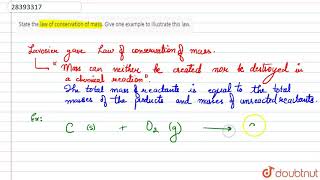 28393317
State the law of conservation of mass. Give one example to illustrate this law.
Lavoisier gave Law of conservation of mass.
"Mass can neither be created nor be destroyed in
a chemical reaction".
The total mass of reactants is equal to the total
masses of the products and masses of unreacted reactants.
Ex:
C (s) + O2 (g) →
doubtnut